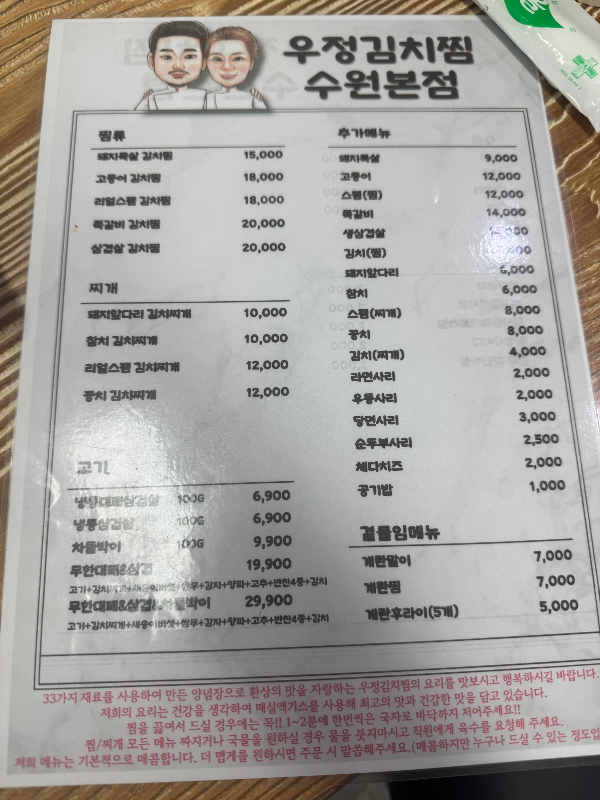 우정김치찜
수원본점
찜류
돼지목살 김치찜 15,000
고등어 김치찜 18,000
리얼스팸 김치찜 18,000
쪽갈비 김치찜 20,000
삼겹살 김치찜 20,000
찌개
돼지앞다리 김치찌개 10,000
참치 김치찌개 10,000
리얼스팸 김치찌개 12,000
꽁치 김치찌개 12,000
고기
냉삼대패삼겹살 100G 6,900
냉통삼겹살 100G 6,900
차돌박이 100G 9,900
무한대패&삼겹 19,900
고기+김치찌개+새송이버섯+쌈무+감자+양파+고추+반찬4종+김치
무한대패&삼겹&차돌박이 29,900
고기+김치찌개+새송이버섯+쌈무+감자+양파+고추+반찬4종+김치
추가메뉴
돼지목살 9,000
고등어 12,000
스팸(찜) 12,000
쪽갈비 14,000
생삼겹살
김치(찜)
돼지앞다리 6,000
참치 6,000
스팸(찌개) 8,000
꽁치 8,000
김치(찌개) 4,000
라면사리 2,000
우동사리 2,000
당면사리 3,000
순두부사리 2,500
체다치즈 2,000
공기밥 1,000
곁들임메뉴
계란말이 7,000
계란찜 7,000
계란후라이(5개) 5,000
33가지 재료를 사용하여 만든 양념장으로 환상의 맛을 자랑하는 우정김치찜의 요리를 맛보시고 행복하시길 바랍니다.
저희의 요리는 건강을 생각하여 매실엑기스를 사용해 최고의 맛과 건강한 맛을 담고 있습니다.
찜을 끓여서 드실 경우에는 꼭!! 1~2분에 한번씩은 국자로 바닥까지 저어주세요!!
찜/찌개 모든 메뉴 짜지거나 국물을 원하실 경우 물을 붓지마시고 직원에게 육수를 요청해 주세요.
저희 메뉴는 기본적으로 매콤합니다. 더 맵게를 원하시면 주문 시 말씀해주세요.(매콤하지만 누구나 드실 수 있는 정도입